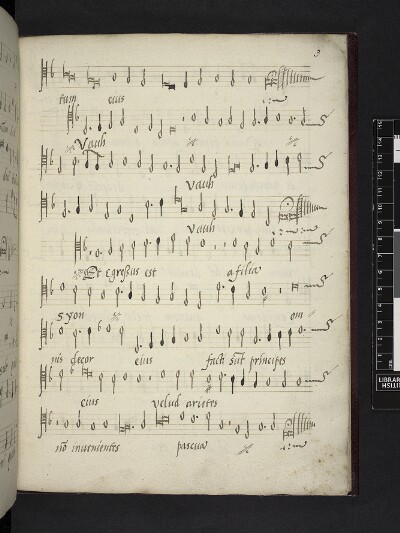 3
tum eius
Vauh
Vauh
Vauh
Et egressus est a filia
syon om
nis decor eius facti sūt principes
eius velud arietes
nō inuenientes pascua